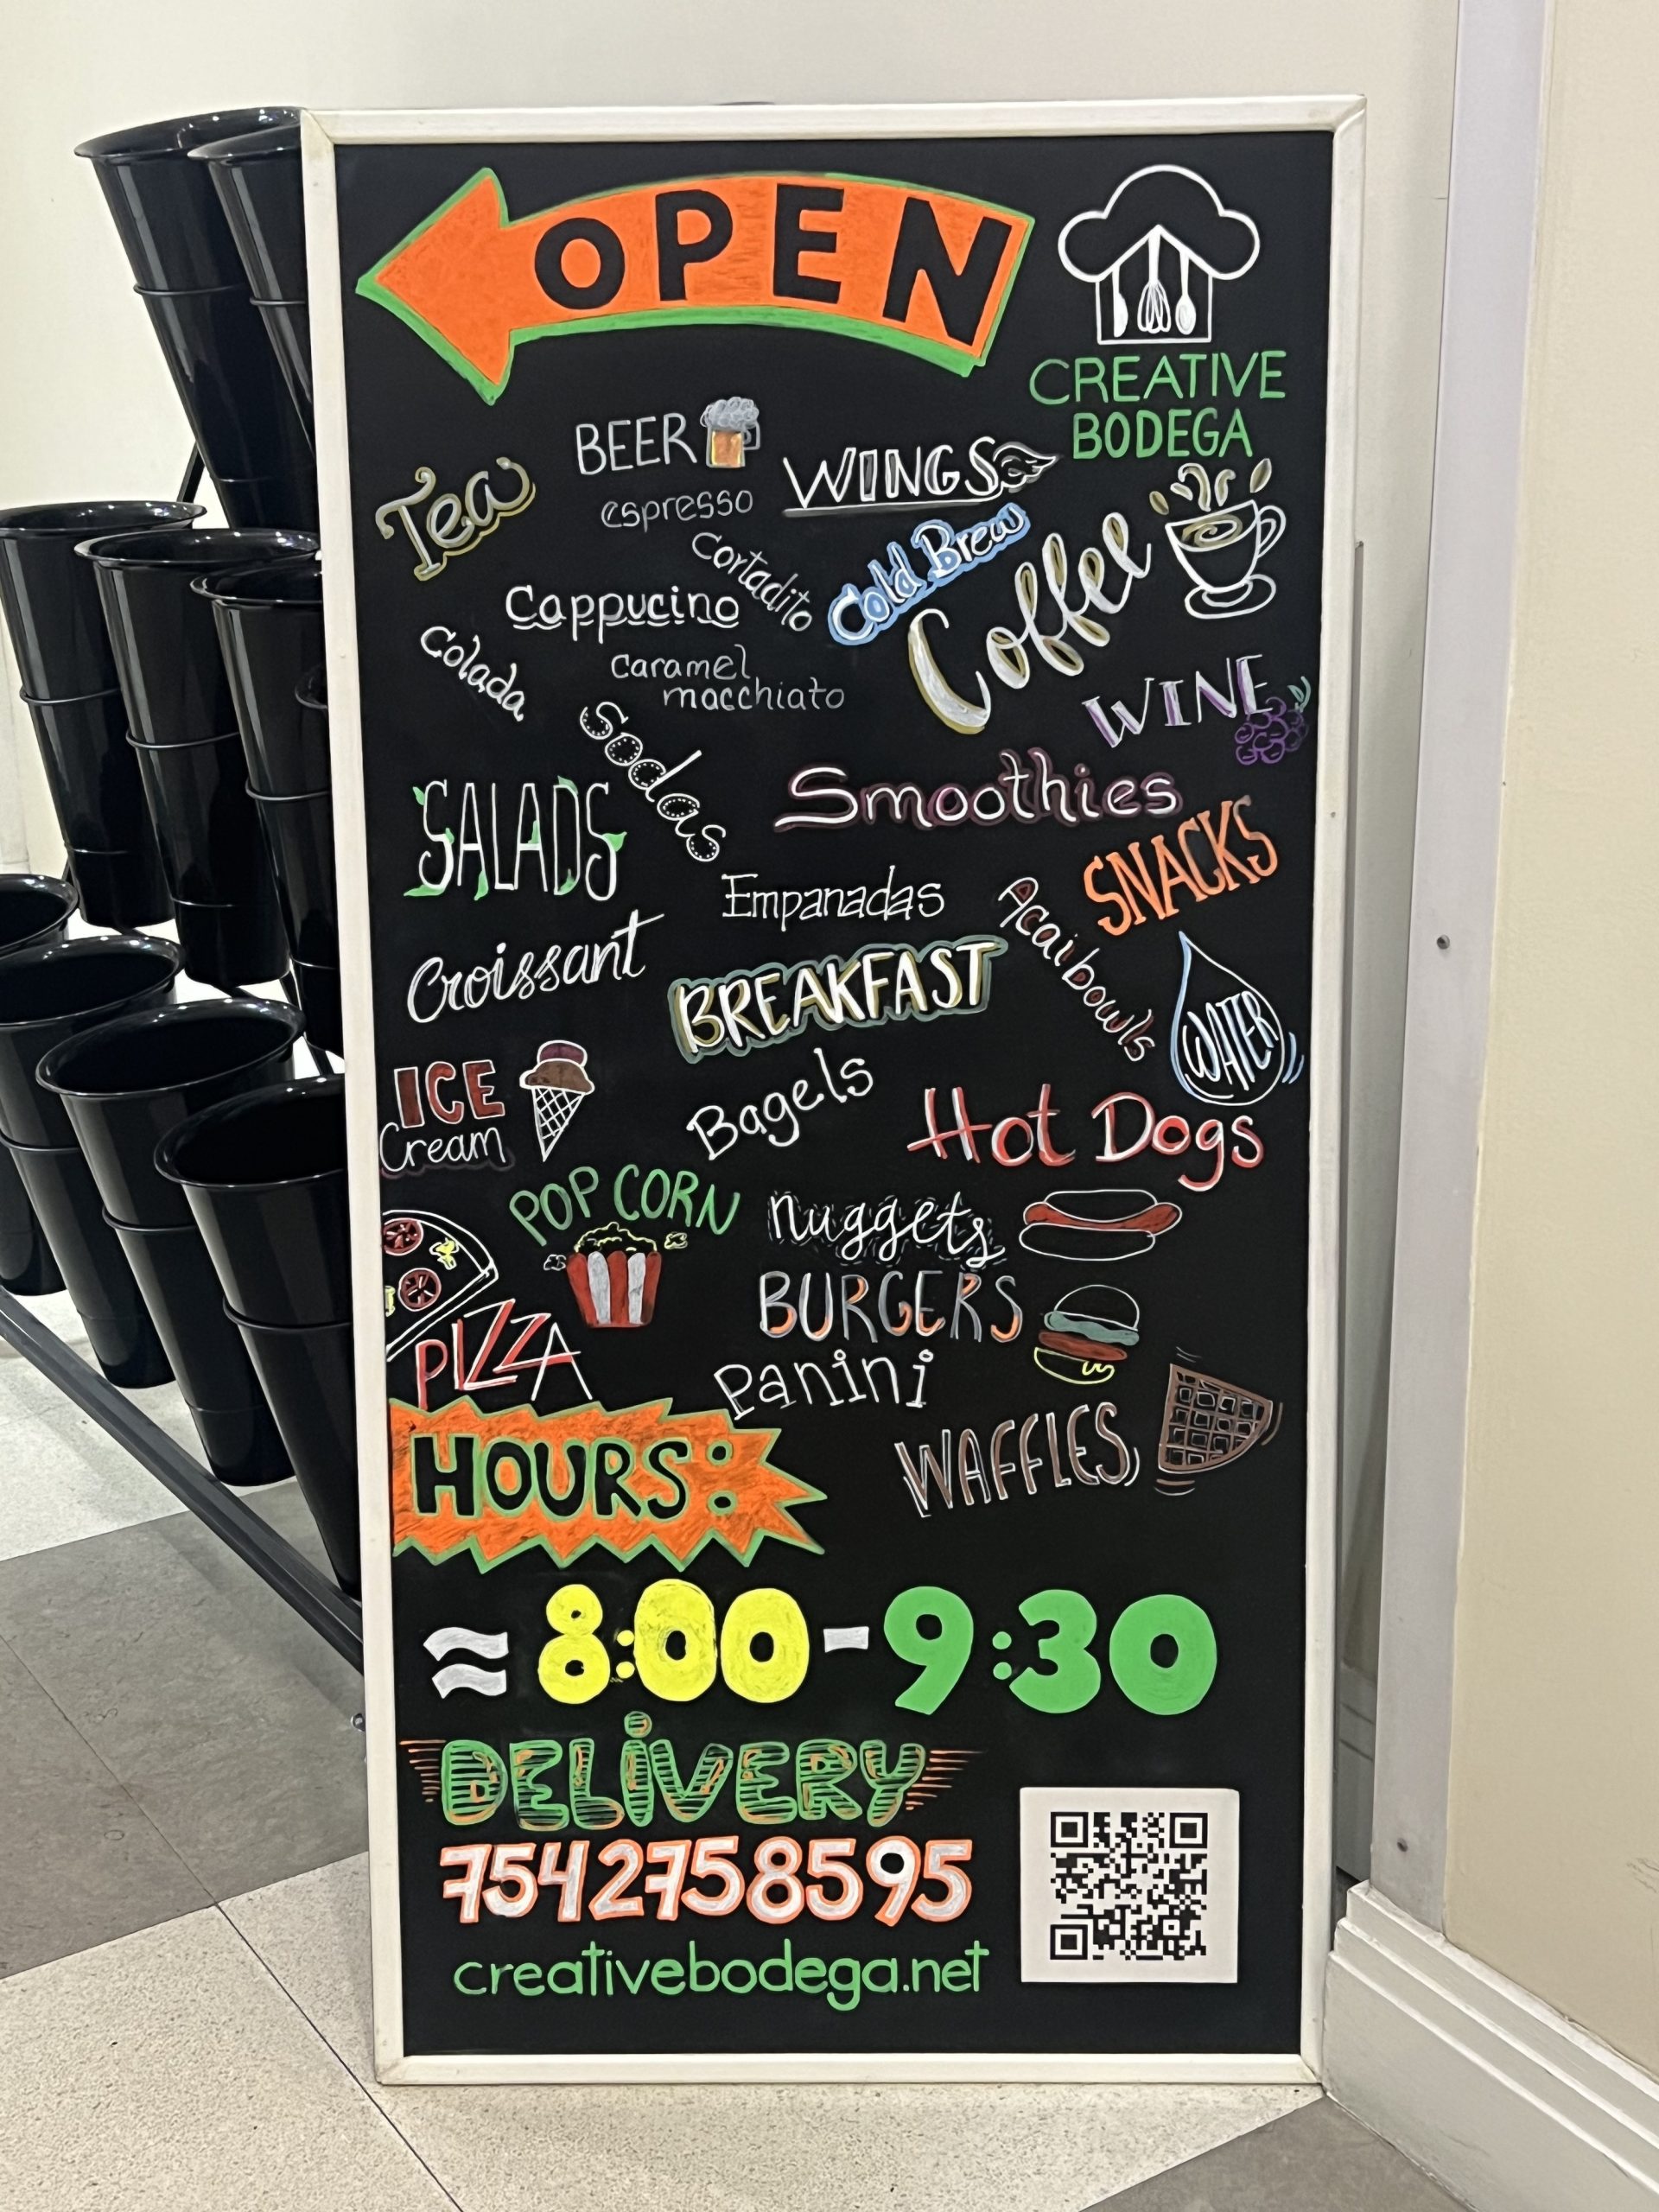 OPEN
CREATIVE
BODEGA
BEER
Tea
espresso
WINGS
Cortadito
Cold Brew
Coffee
Cappucino
Colada
caramel
macchiato
WINE
Sodas
SALADS
Smoothies
SNACKS
Empanadas
Acai bowls
Croissant
BREAKFAST
WATER
ICE
Cream
Bagels
Hot Dogs
POP CORN
nuggets
BURGERS
PIZZA
Panini
WAFFLES
HOURS:
≈ 8:00-9:30
DELiVERY
7542758595
creativebodega.net